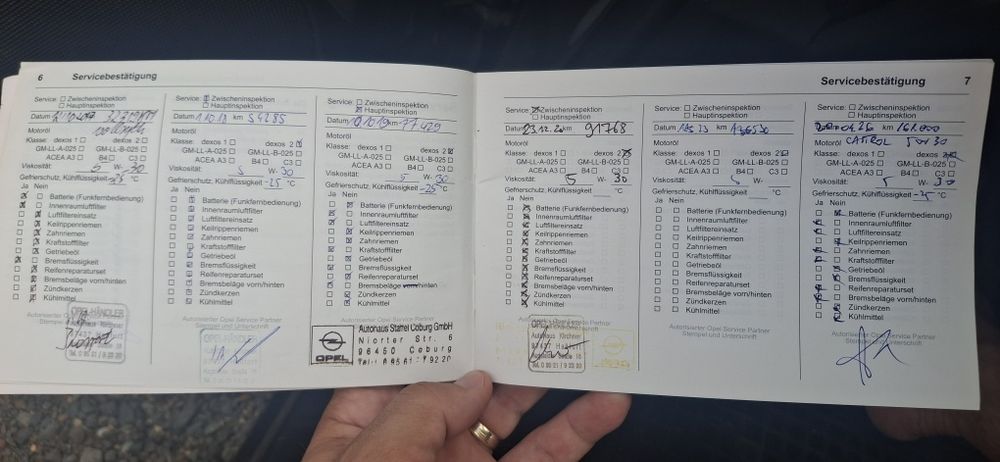 6 Servicebestätigung
Service: Zwischeninspektion
Hauptinspektion
Datum km
Motoröl
Klasse: dexos 1 dexos 2
GM-LL-A-025 GM-LL-B-025
ACEA A3 B4 C3
Viskosität: 5 W- 30
Gefrierschutz, Kühlflüssigkeit -25 °C
Ja Nein
Batterie (Funkfernbedienung)
Innenraumluftfilter
Luftfiltereinsatz
Keilrippenriemen
Zahnriemen
Kraftstofffilter
Getriebeöl
Bremsflüssigkeit
Reifenreparaturset
Bremsbeläge vorn/hinten
Zündkerzen
Kühlmittel
Autorisierter Opel Service Partner
Stempel und Unterschrift
OPEL-HÄNDLER
Service: Zwischeninspektion
Hauptinspektion
Datum km 54285
Motoröl
Klasse: dexos 1 dexos 2
GM-LL-A-025 GM-LL-B-025
ACEA A3 B4 C3
Viskosität: 5 W- 30
Gefrierschutz, Kühlflüssigkeit -25 °C
Ja Nein
Batterie (Funkfernbedienung)
Innenraumluftfilter
Luftfiltereinsatz
Keilrippenriemen
Zahnriemen
Kraftstofffilter
Getriebeöl
Bremsflüssigkeit
Reifenreparaturset
Bremsbeläge vorn/hinten
Zündkerzen
Kühlmittel
Autorisierter Opel Service Partner
Stempel und Unterschrift
OPEL-HÄNDLER
Service: Zwischeninspektion
Hauptinspektion
Datum 10.10.19 km 77429
Motoröl
Klasse: dexos 1 dexos 2
GM-LL-A-025 GM-LL-B-025
ACEA A3 B4 C3
Viskosität: 5 W- 30
Gefrierschutz, Kühlflüssigkeit -25 °C
Ja Nein
Batterie (Funkfernbedienung)
Innenraumluftfilter
Luftfiltereinsatz
Keilrippenriemen
Zahnriemen
Kraftstofffilter
Getriebeöl
Bremsflüssigkeit
Reifenreparaturset
Bremsbeläge vorn/hinten
Zündkerzen
Kühlmittel
Autorisierter Opel Service Partner
Stempel und Unterschrift
Autohaus Stattel Coburg GmbH
Niorter Str. 6
96450 Coburg
OPEL Tel.: 09561-7920
Servicebestätigung 7
Service: Zwischeninspektion
Hauptinspektion
Datum 23.12.20 km 91768
Motoröl
Klasse: dexos 1 dexos 2
GM-LL-A-025 GM-LL-B-025
ACEA A3 B4 C3
Viskosität: 5 W- 30
Gefrierschutz, Kühlflüssigkeit °C
Ja Nein
Batterie (Funkfernbedienung)
Innenraumluftfilter
Luftfiltereinsatz
Keilrippenriemen
Zahnriemen
Kraftstofffilter
Getriebeöl
Bremsflüssigkeit
Reifenreparaturset
Bremsbeläge vorn/hinten
Zündkerzen
Kühlmittel
Service Partner
OPEL
Autohaus Kirchner
Service: Zwischeninspektion
Hauptinspektion
Datum km
Motoröl
Klasse: dexos 1 dexos 2
GM-LL-A-025 GM-LL-B-025
ACEA A3 B4 C3
Viskosität: 5 W- 30
Gefrierschutz, Kühlflüssigkeit °C
Ja Nein
Batterie (Funkfernbedienung)
Innenraumluftfilter
Luftfiltereinsatz
Keilrippenriemen
Zahnriemen
Kraftstofffilter
Getriebeöl
Bremsflüssigkeit
Reifenreparaturset
Bremsbeläge vorn/hinten
Zündkerzen
Kühlmittel
Autorisierter Opel Service Partner
Stempel und Unterschrift
Service: Zwischeninspektion
Hauptinspektion
161.000
Motoröl 5W30
Klasse: dexos 1 dexos 2
GM-LL-A-025 GM-LL-B-025
ACEA A3 B4 C3
Viskosität: 5 W- 30
Gefrierschutz, Kühlflüssigkeit °C
Ja Nein
Batterie (Funkfernbedienung)
Innenraumluftfilter
Luftfiltereinsatz
Keilrippenriemen
Zahnriemen
Kraftstofffilter
Getriebeöl
Bremsflüssigkeit
Reifenreparaturset
Bremsbeläge vorn/hinten
Zündkerzen
Kühlmittel
Autorisierter Opel Service Partner
Stempel und Unterschrift